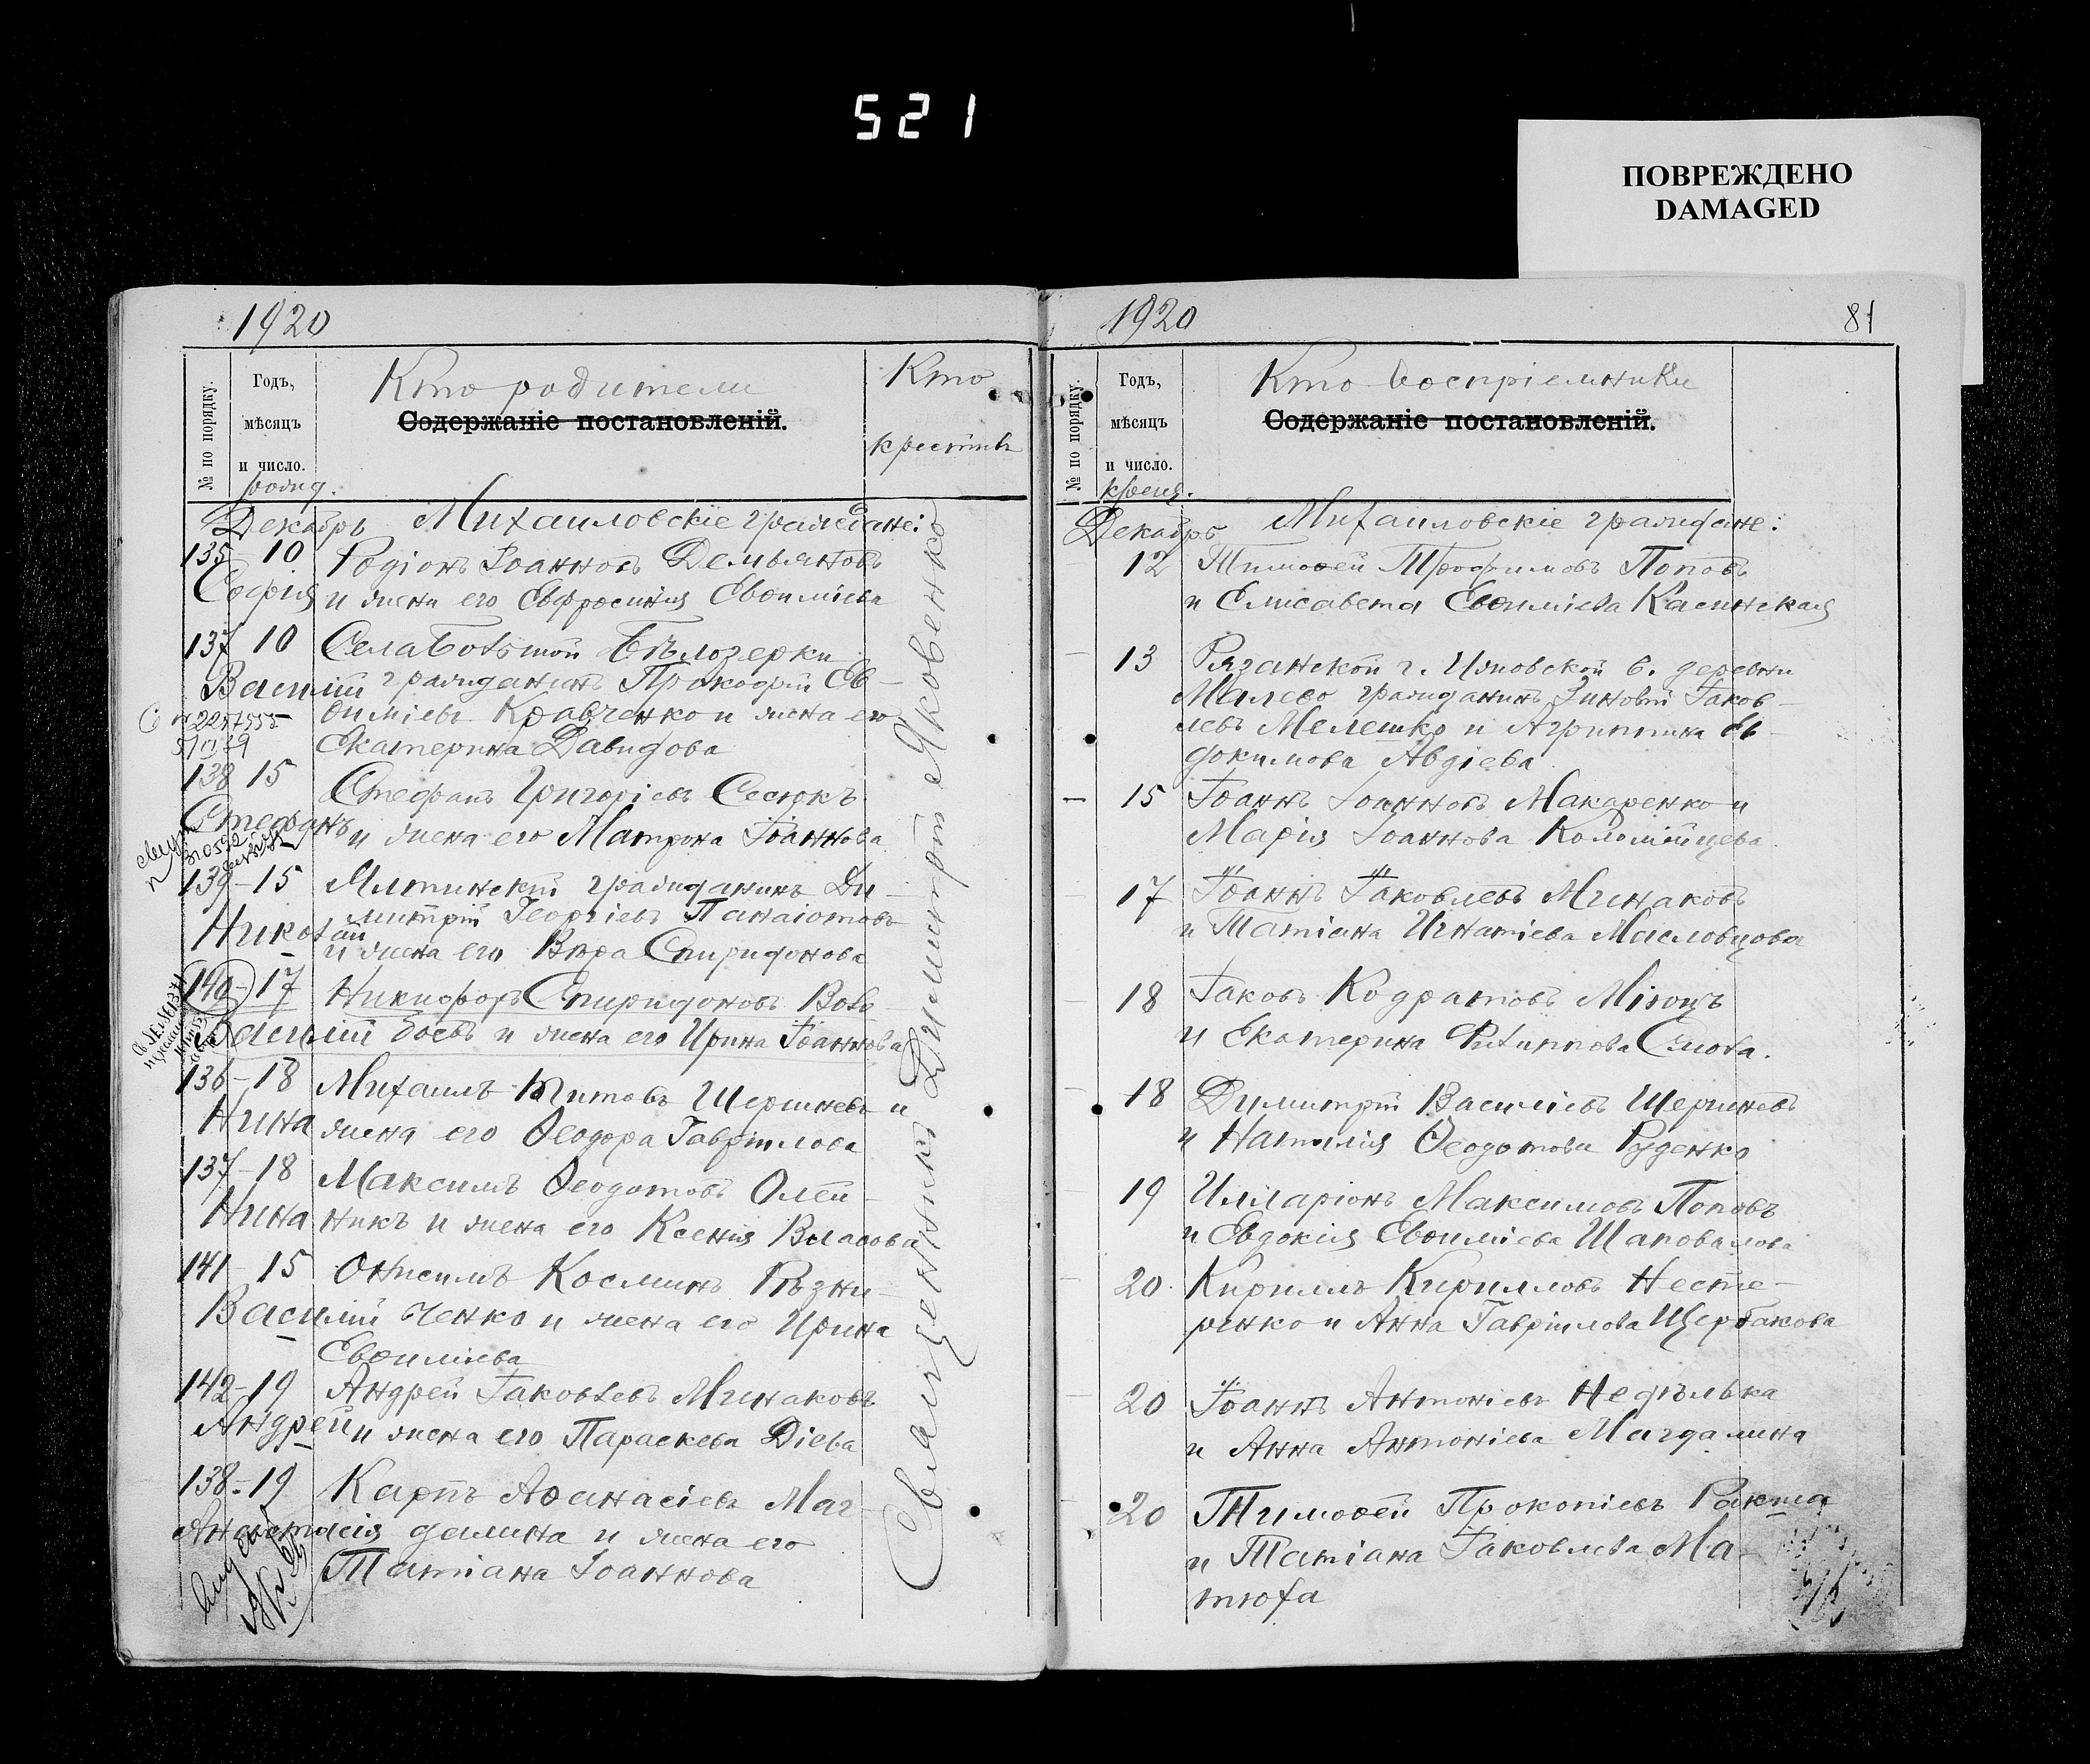 521
ПОВРЕЖДЕНО
DAMAGED
1920
№ по порядку.
Годъ,
мѣсяцъ
и число.
рожд.
Кто родители
Содержаніе постановленій.
Кто
крестилъ
Декабрь Михаиловскіе граждане:
135 - 10 Родіонъ Іоанновъ Демьяновъ
Софія и жена его Евфросинія Евѳиміева
137 10 Села Больтой Бѣлозерки
Василій гражданинъ Прокофій Ев-
ѳиміевъ Кравченко и жена его
Екатерина Давидова
138 15 Стефанъ Григоріевъ Сесюкъ
Стефанъ и жена его Матрона Іоаннова
139 - 15 Ялтинскій гражданинъ Ди-
митрій Георгіевъ Панаіотовъ
Николай и жена его Вѣра Спиридонова
140 - 17 Никифоръ Спиридоновъ Воло
Василій боевъ и жена его Ирина Іоаннова
136 - 18 Михаилъ Титовъ Шершневъ и
Нина жена его Ѳеодора Гавріилова
137 - 18 Максимъ Ѳеодотовъ Олей-
Нина никъ и жена его Ксенія Власова
141 - 15 Онисимъ Косминъ Рѣзни-
Василій ченко и жена его Ирина
Евѳиміева
142 - 19 Андрей Іаковлевъ Минаковъ
Андрей и жена его Параскева Діева
138 - 19 Карпъ Аѳанасіевъ Маг-
Анастасія далина и жена его
Татіана Іоаннова
Священникъ Димитрій Яковенко
1920
81
№ по порядку.
Годъ,
мѣсяцъ
и число.
крещ.
Кто воспріемники
Содержаніе постановленій.
Декабрь Михаиловскіе граждане:
12 Тимоѳей Трофимовъ Поповъ
и Елисавета Евѳиміева Касинская
13 Рязанской г. Ижовской в. деревни
Малево гражданинъ Зиновій Іаков-
левъ Мелешко и Агриппина Ев-
докимова Авдіева
15 Іоаннъ Іоанновъ Макаренко и
Марія Іоаннова Коломійцева
17 Іоаннъ Іаковлевъ Минаковъ
и Татіана Игнатіева Масловцова
18 Іаковъ Кодратовъ Мироцъ
и Екатерина Филиппова Сиова.
18 Димитрій Василіевъ Шершневъ
и Наталія Ѳеодотова Руденко
19 Илларіонъ Максимовъ Поповъ
и Евдокія Евѳиміева Шаповалова
20 Кириллъ Кирилловъ Несте-
ренко и Анна Гавріилова Щербакова
20 Іоаннъ Антоніевъ Недѣлька
и Анна Антоніева Магдалина
20 Тимоѳей Прокопіевъ Ракша
и Татіана Іаковлева Ма-
тюха